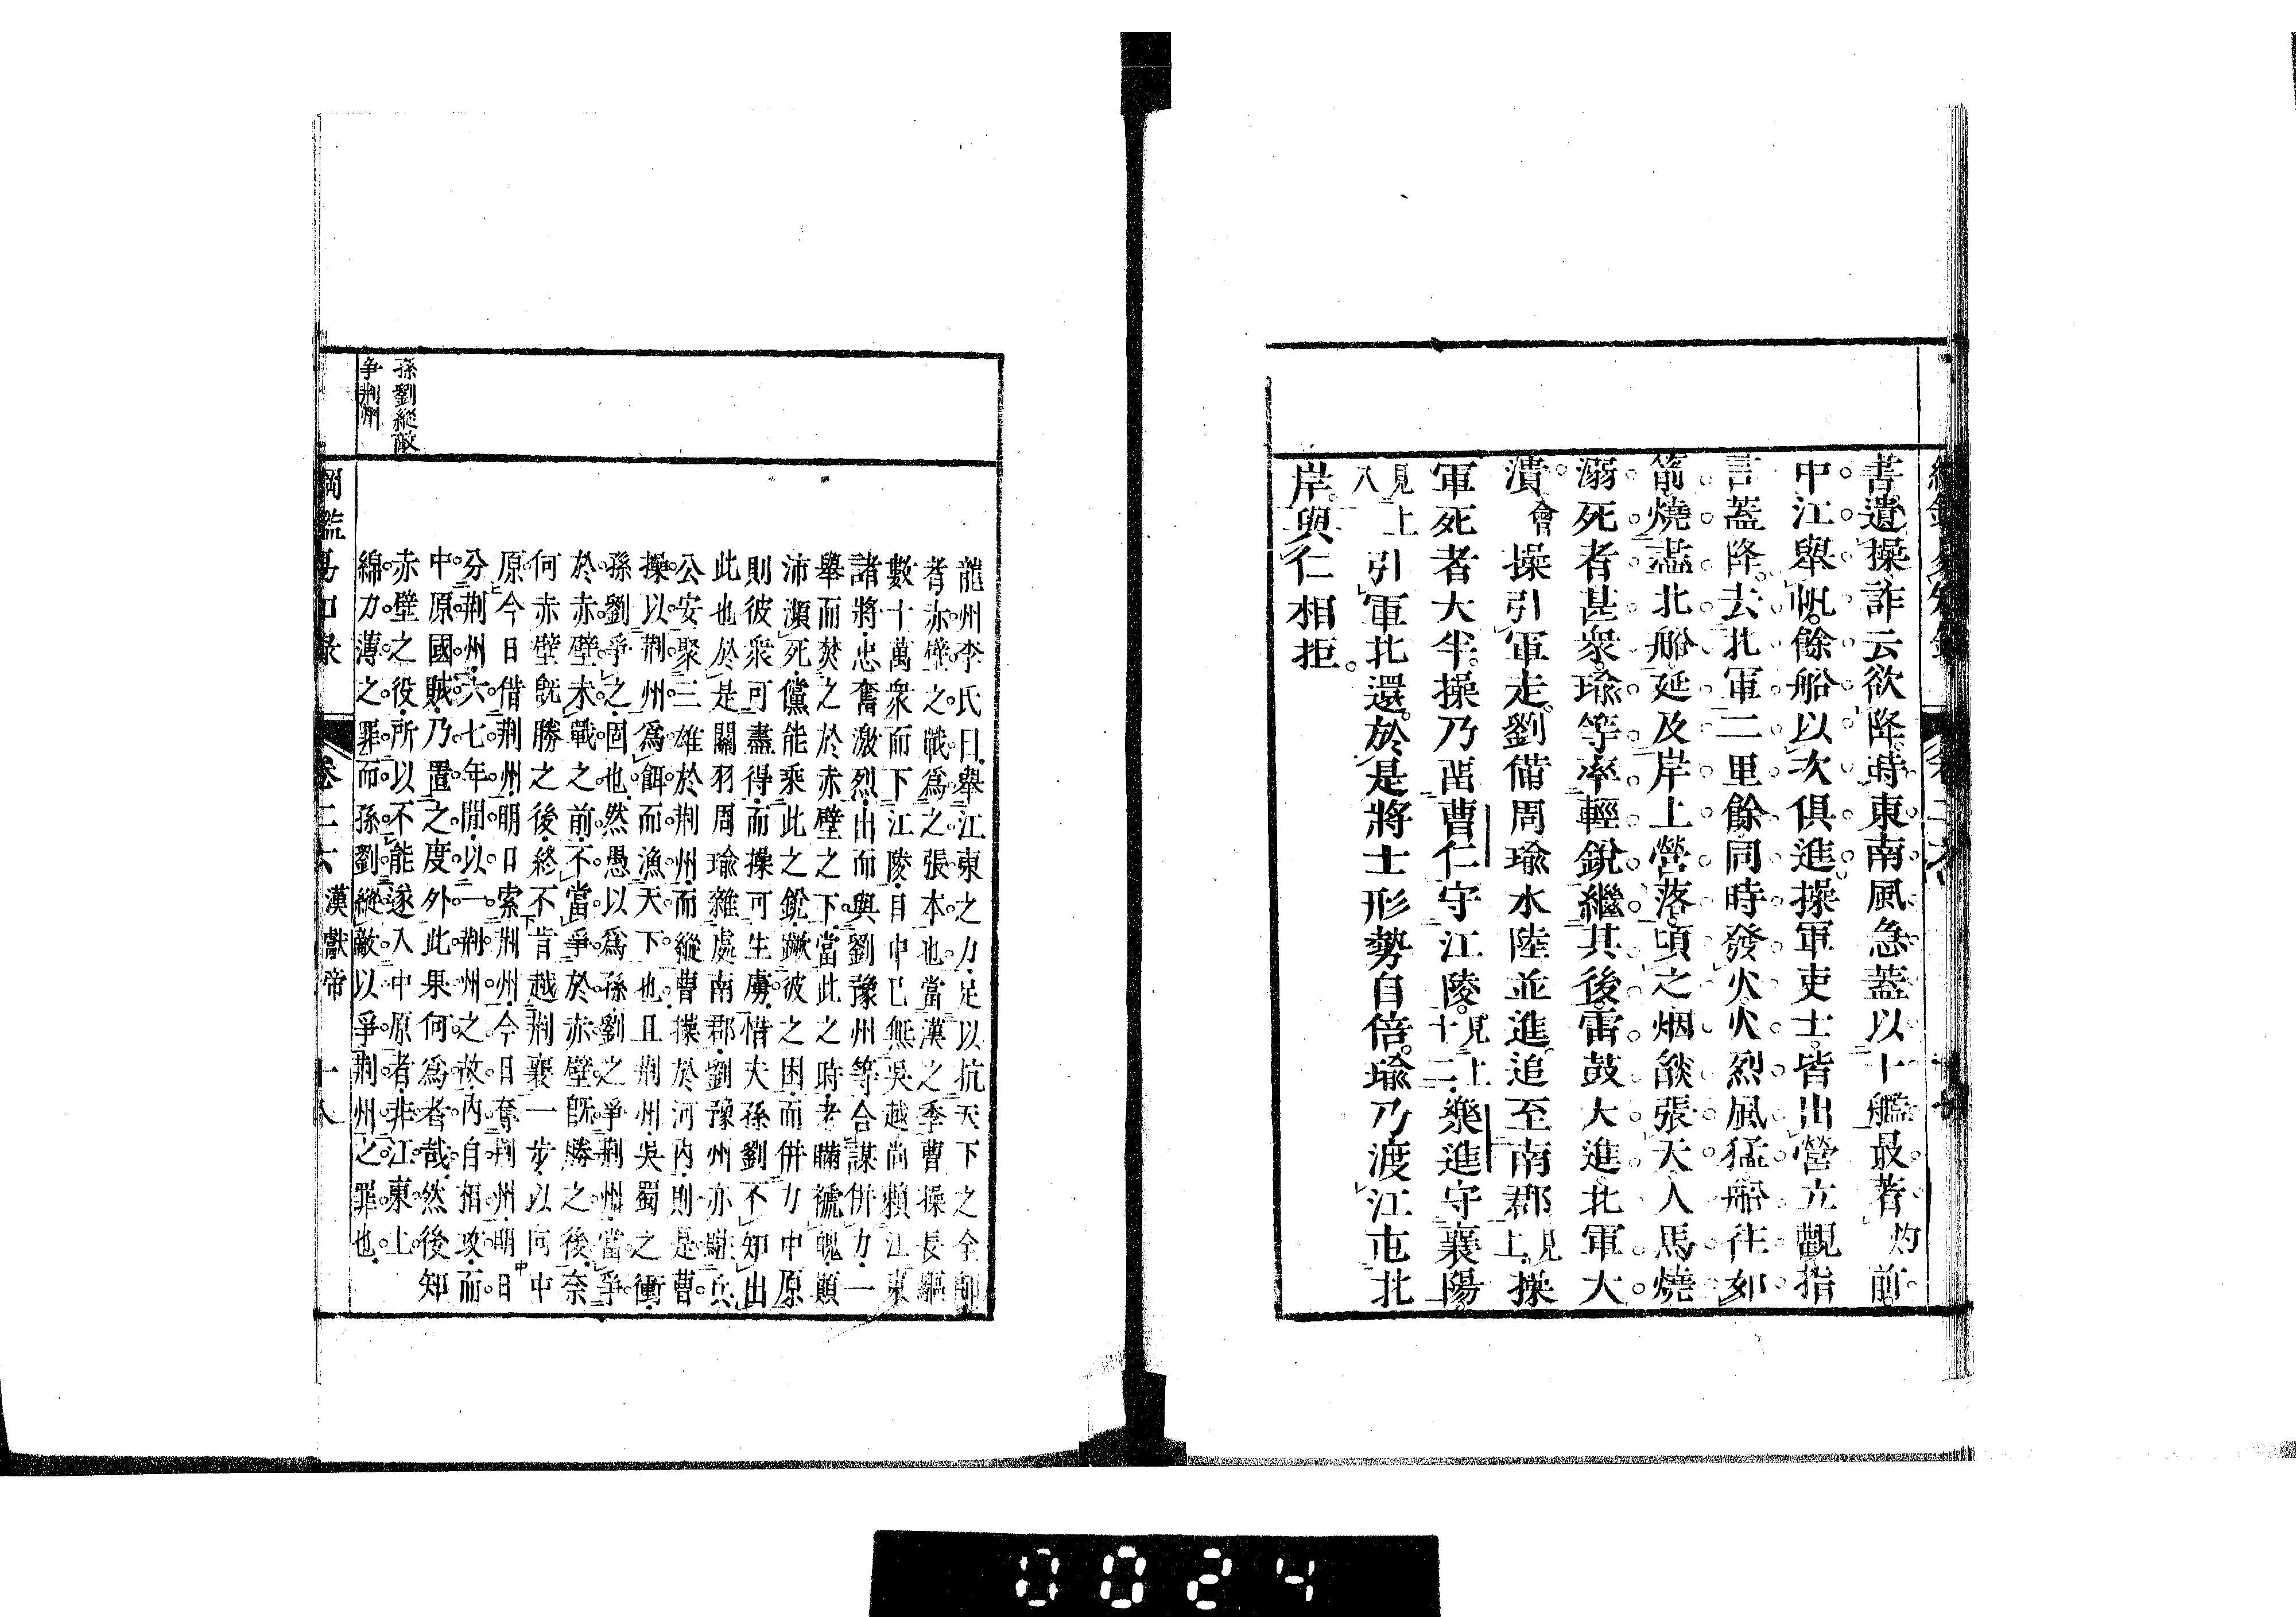 書遺操詐云欲降時東南風急蓋以十艦最著灼前
中江舉帆餘船以次俱進操軍吏士皆出營立觀指
言蓋降去北軍二里餘同時發火火烈風猛船往如
箭燒盡北船延及岸上營落頃之烟燄張天人馬燒
溺死者甚衆瑜等率輕銳繼其後雷鼓大進北軍大
潰會操引軍走劉備周瑜水陸並進追至南郡見上操
軍死者大半操乃畱曹仁守江陵見上十二樂進守襄陽
見上八引軍北還於是將士形勢自倍瑜乃渡江屯北
岸與仁相拒
龍州李氏曰舉江東之力足以抗天下之全師
者赤壁之戰爲之張本也當漢之季曹操長驅
數十萬衆而下江陵目中已無吳越尚賴江東
諸將忠奮激烈出而與劉豫州等合謀併力一
舉而焚之於赤壁之下當此之時老瞞褫魄顚
沛瀕死儻能乘此之銳蹶彼之困而併力中原
則彼衆可盡得而操可生虜惜夫孫劉不知出
此也於是關羽周瑜雜處南郡劉豫州亦駐兵
公安聚三雄於荆州而縱曹操於河內則是曹
操以荆州爲餌而漁天下也且荆州吳蜀之衝
孫劉爭之固也然愚以爲孫劉之爭荆州當爭
於赤壁未戰之前不當爭於赤壁旣勝之後奈
何赤壁旣勝之後終不肯越荆襄一步以向中
原今日借荆州明日索荆州今日奪荆州明日
分荆州六七年閒以一荆州之故內自相攻而
中原國賊乃置之度外此果何爲者哉然後知
赤壁之役所以不能遂入中原者非江東上
綿力薄之罪而孫劉縱敵以爭荆州之罪也
孫劉縱敵
爭荆州
綱鑑易知錄 卷二六 漢獻帝 十八